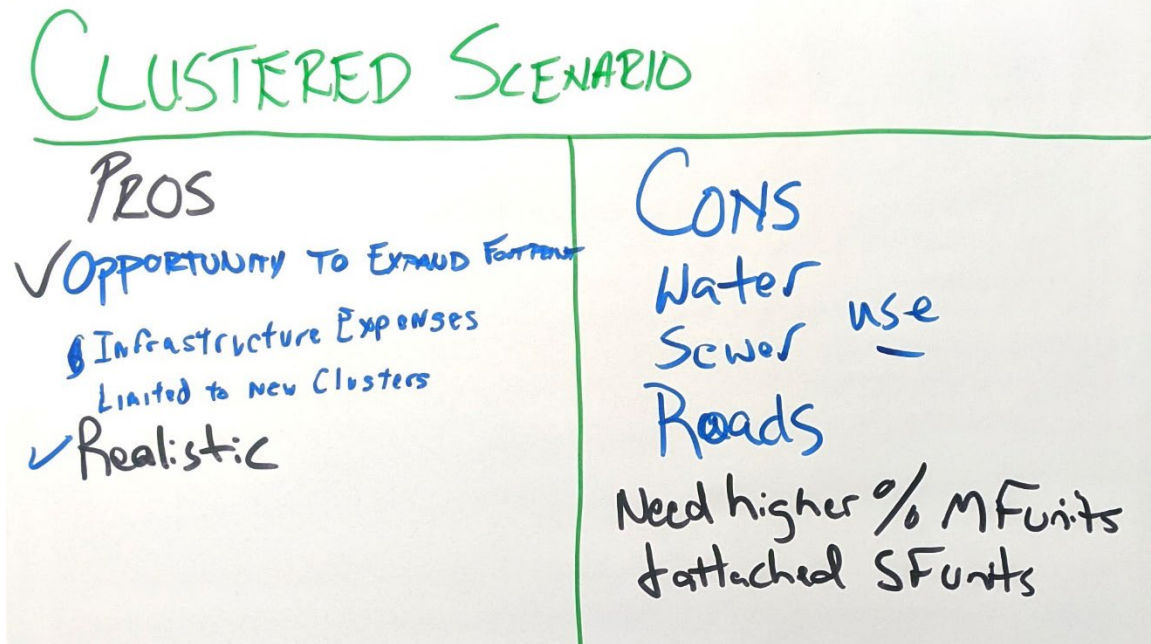 CLUSTERED SCENARIO
PROS
✓ OPPORTUNITY TO EXPAND FOOTPRINT
Infrastructure Expenses
Limited to New Clusters
✓ Realistic
CONS
Water
Sewer use
Roads
Need higher % MF units
+ attached SF units